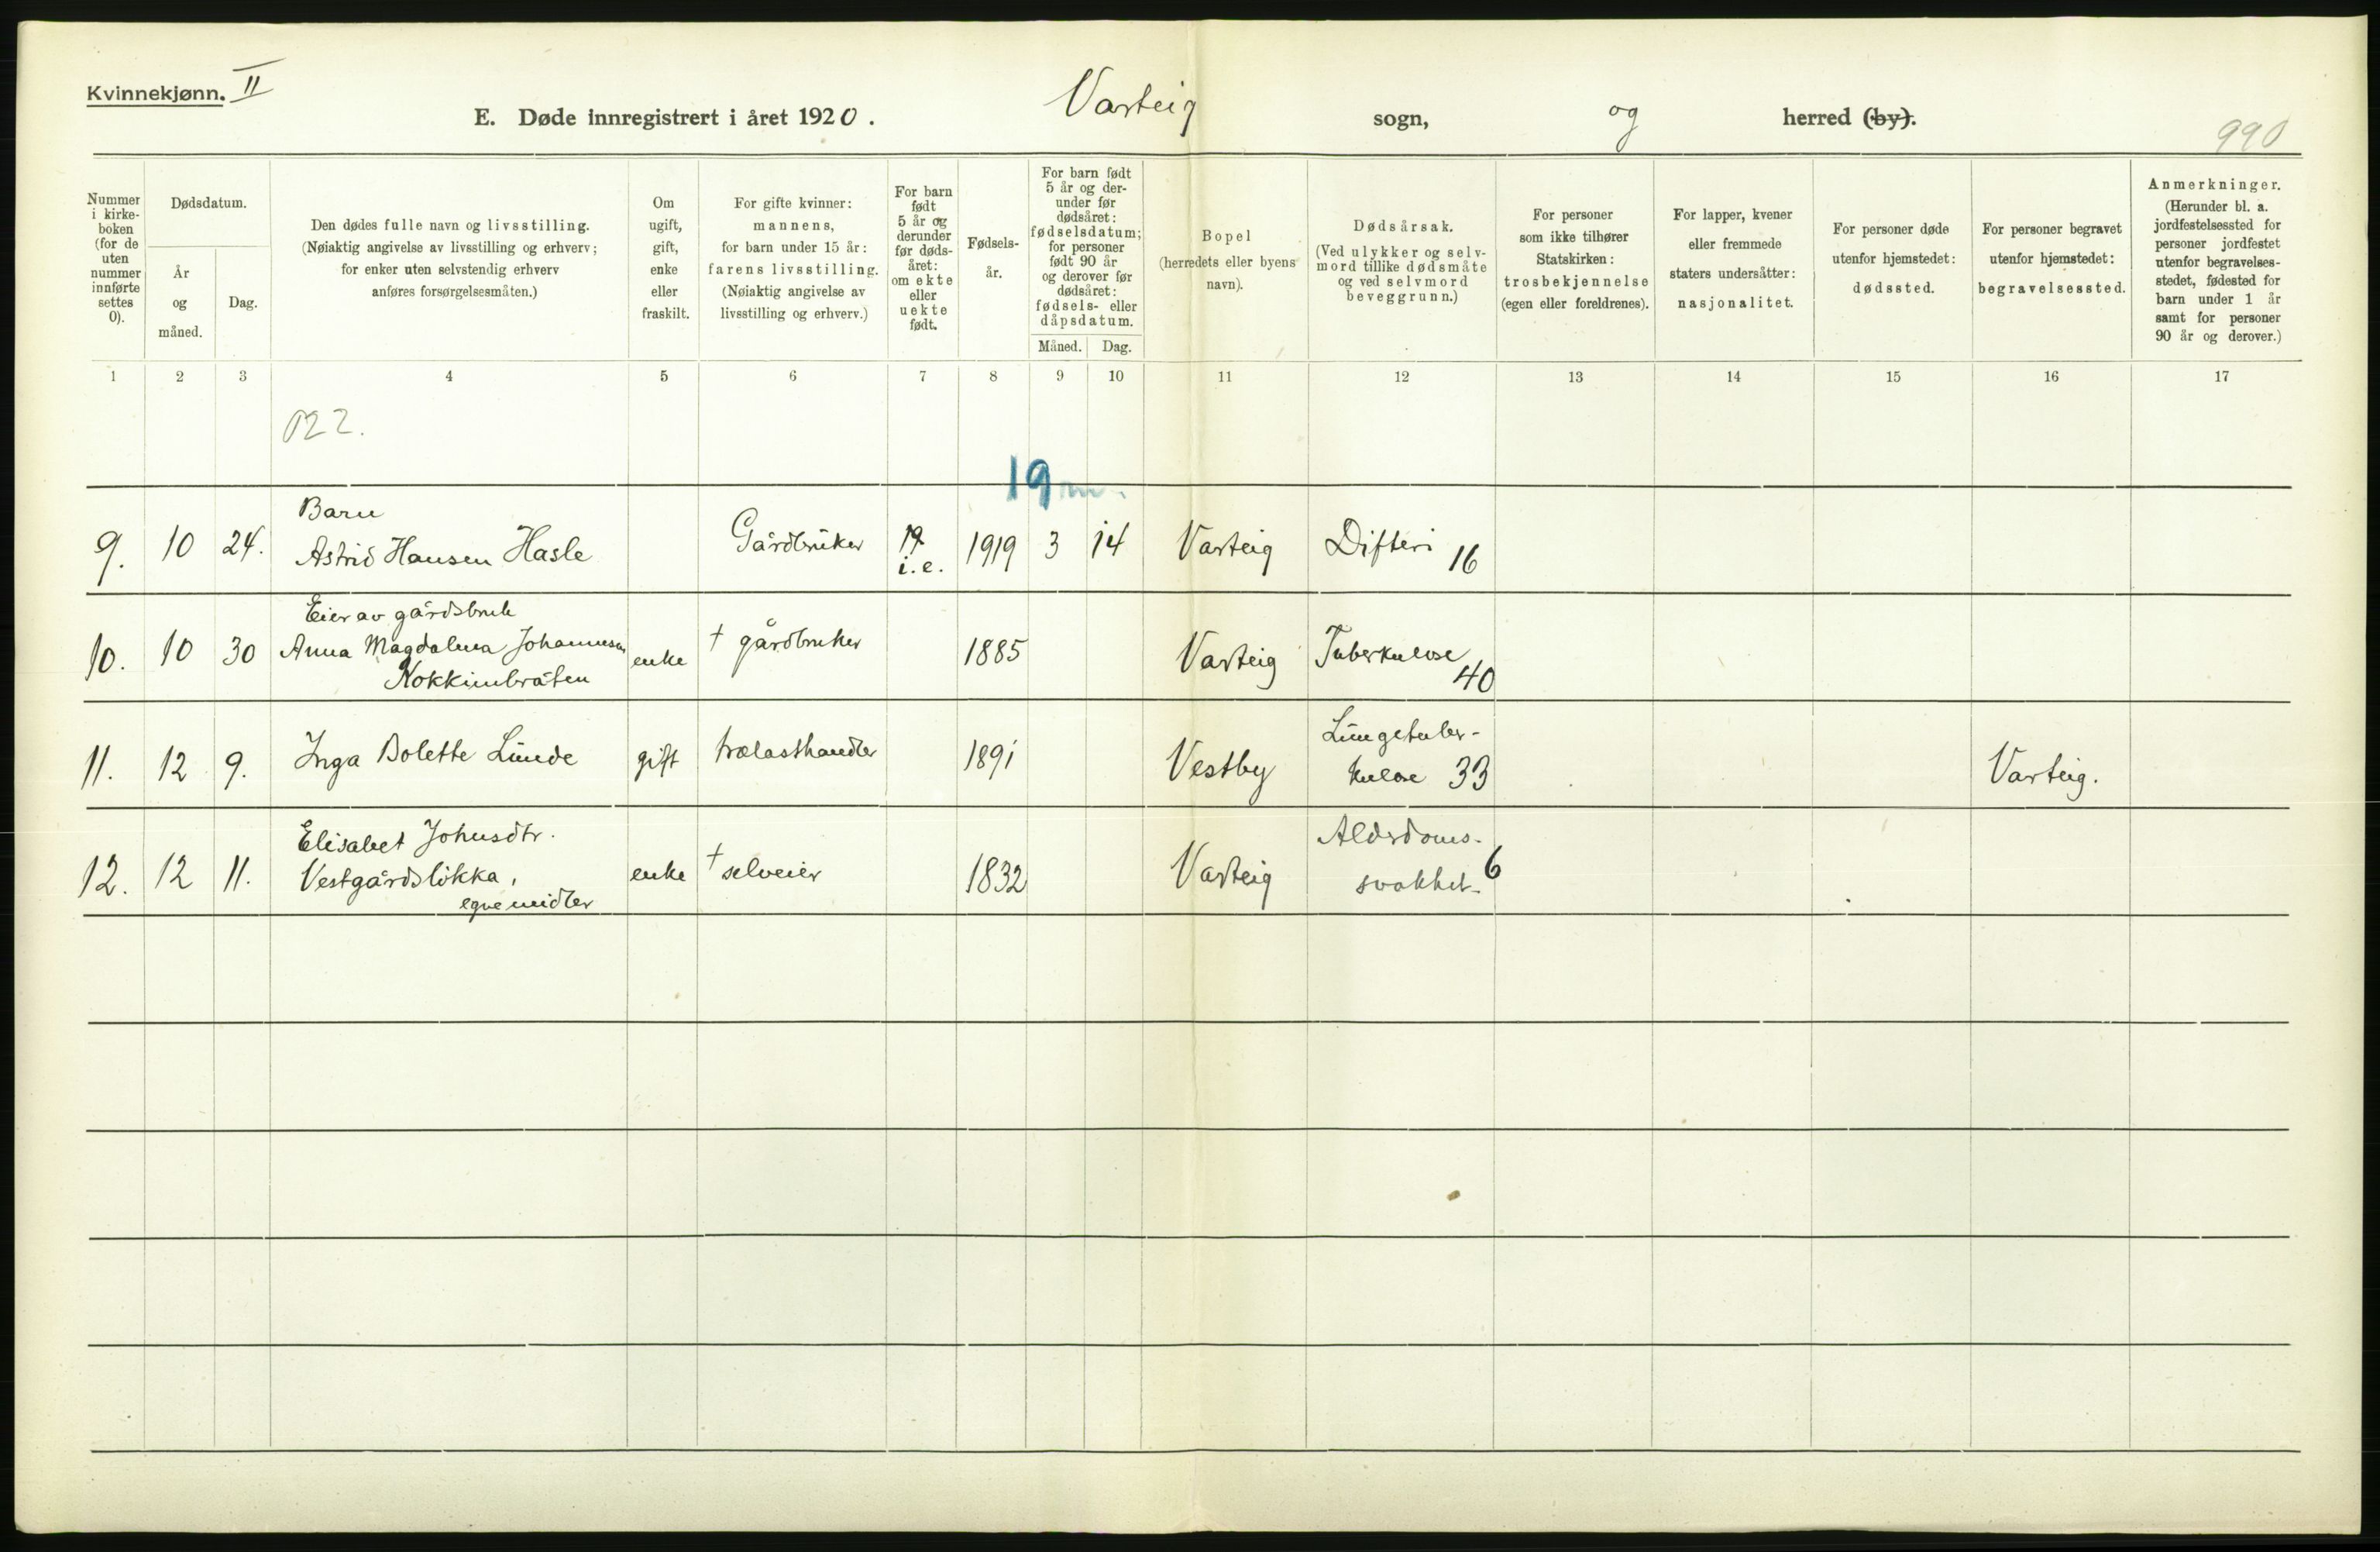 Kvinnekjønn. II
E. Døde innregistrert i året 1920. Varteig sogn, og herred (by).
990
Nummer i kirkeboken (for de uten nummer innførte settes 0).
Dødsdatum.
År og måned.
Dag.
Den dødes fulle navn og livsstilling. (Nøiaktig angivelse av livsstilling og erhverv; for enker uten selvstendig erhverv anføres forsørgelsesmåten.)
Om ugift, gift, enke eller fraskilt.
For gifte kvinner: mannens, for barn under 15 år: farens livsstilling. (Nøiaktig angivelse av livsstilling og erhverv.)
For barn født 5 år og derunder før dødsåret: om ekte eller uekte født.
Fødselsår.
For barn født 5 år og derunder før dødsåret: fødselsdatum; for personer født 90 år og derover før dødsåret: fødsels- eller dåpsdatum.
Måned. Dag.
Bopel (herredets eller byens navn).
Dødsårsak. (Ved ulykker og selvmord tillike dødsmåte og ved selvmord beveggrunn.)
For personer som ikke tilhører Statskirken: trosbekjennelse (egen eller foreldrenes).
For lapper, kvener eller fremmede staters undersåtter: nasjonalitet.
For personer døde utenfor hjemstedet: dødssted.
For personer begravet utenfor hjemstedet: begravelsessted.
Anmerkninger. (Herunder bl. a. jordfestelsessted for personer jordfestet utenfor begravelsesstedet, fødested for barn under 1 år samt for personer 90 år og derover.)
1 2 3 4 5 6 7 8 9 10 11 12 13 14 15 16 17
022.
19 m.
Barn
9. 10 24. Astrid Hansen Hasle Gårdbruker i.e. 1919 3 14 Varteig Difteri 16
Eier av gårdsbruk
10. 10 30 Anna Magdalena Johannesen enke † gårdbruker 1885 Varteig Tuberkulose 40
Kokkimbråten
11. 12 9. Inga Bolette Lunde gift trælasthandler 1891 Vestby Lungetuber-
kulose 33 Varteig.
Elisabet Johnsdtr. Alderdoms-
12. 12 11. Vestgårdsløkka, enke † selveier 1832 Varteig svakhet. 6
egne midler